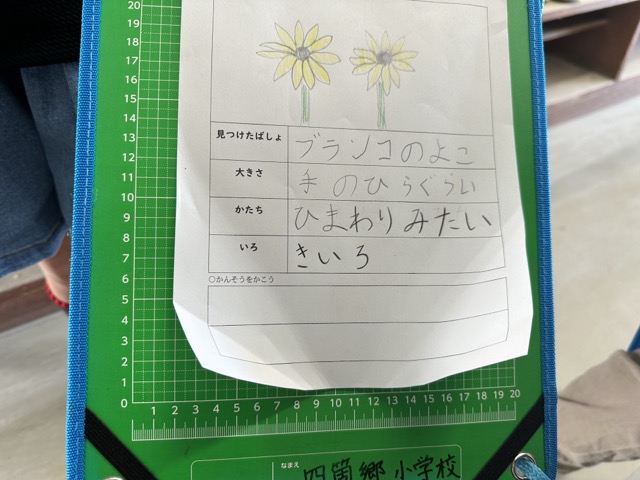 20
19
18
17
16
15
14
13
12
11
10
9
8
7
6
5
4
3
2
1
0
見つけたばしょ ブランコのよこ
大きさ 手のひらぐらい
かたち ひまわりみたい
いろ きいろ
○かんそうをかこう
1 2 3 4 5 6 7 8 9 10 11 12 13 14 15 16 17 18 19 20
なまえ 四箇郷小学校